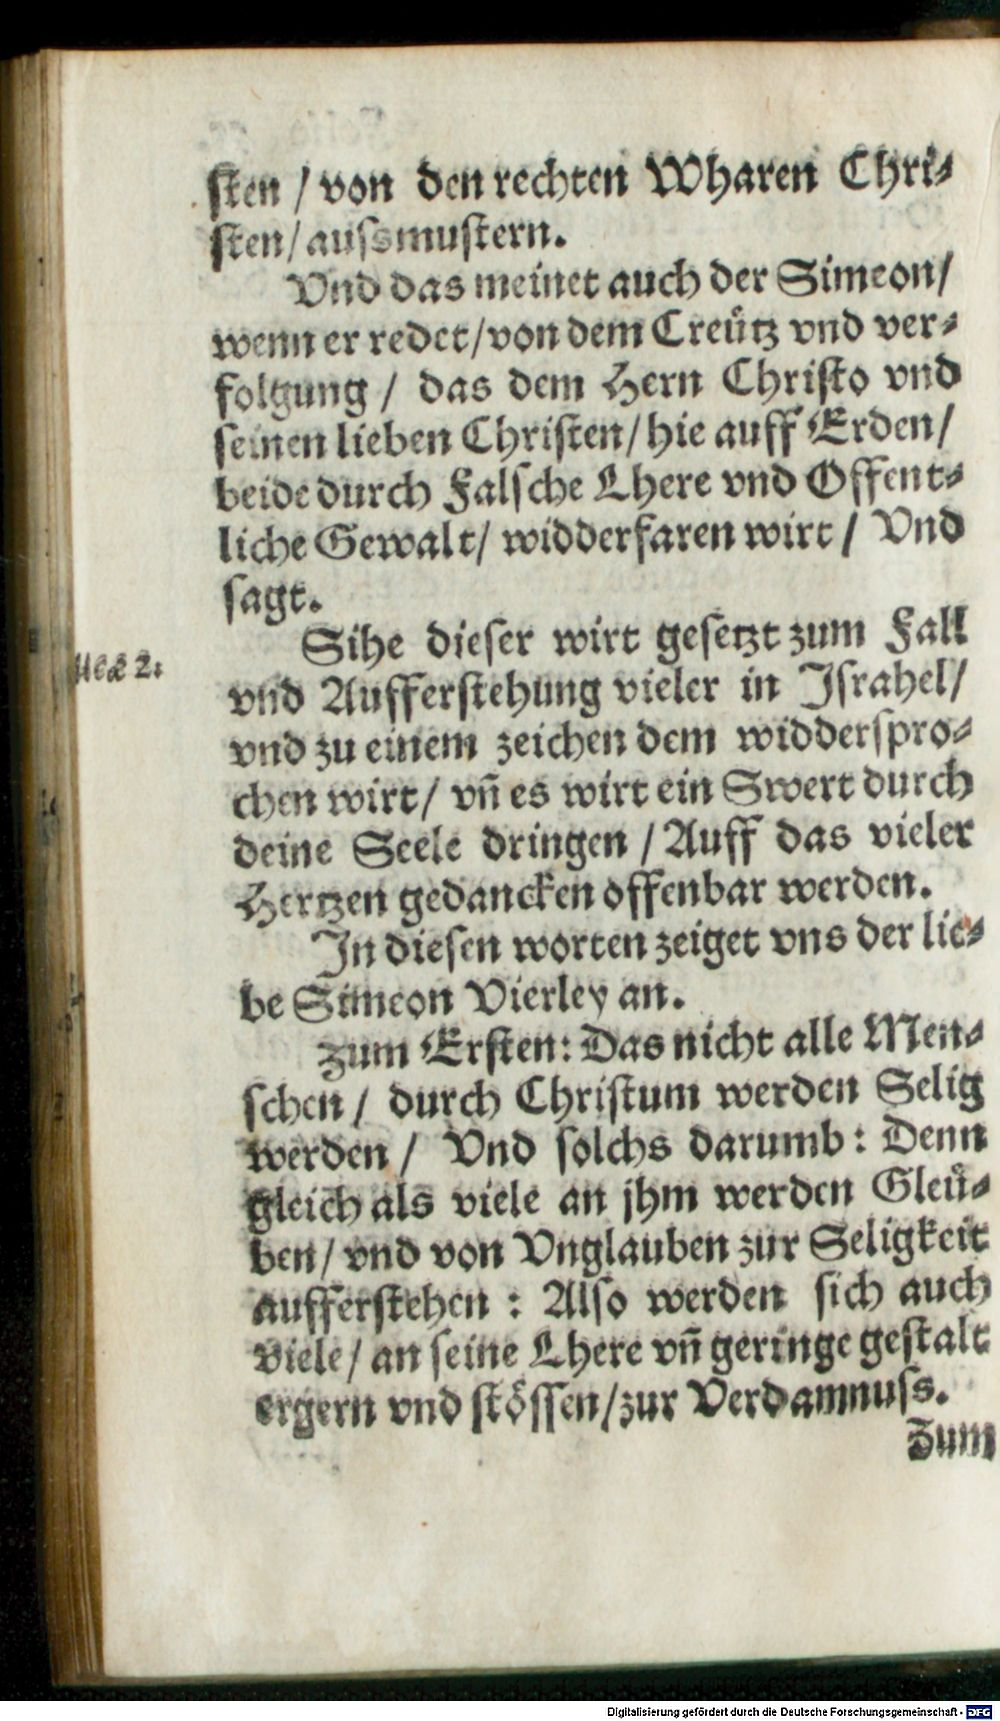 sten / von den rechten Wharen Chri⸗
sten / aussmustern.
Vnd das meinet auch der Simeon /
wenn er redet / von dem Creütz vnd ver⸗
folgung / das dem Hern Christo vnd
seinen lieben Christen / hie auff Erden /
beide durch Falsche Lhere vnd Offent⸗
liche Gewalt / widderfaren wirt / Vnd
sagt.
Sihe dieser wirt gesetzt zum Fall
vnd Aufferstehung vieler in Jsrahel /
vnd zu einem zeichen dem widderspro⸗
chen wirt / vñ es wirt ein Swert durch
deine Seele dringen / Auff das vieler
Hertzen gedancken offenbar werden.
In diesen worten zeiget vns der lie⸗
be Simeon Vierley an.
Zum Ersten: Das nicht alle Men⸗
schen / durch Christum werden Selig
werden / Vnd solchs darumb: Denn
gleich als viele an jhm werden Gleü⸗
ben / vnd von Vnglauben zur Seligkeit
aufferstehen : Also werden sich auch
viele / an seine Lhere vñ geringe gestalt
ergern vnd stössen / zur Verdamnuss.
Zum
Digitalisierung gefördert durch die Deutsche Forschungsgemeinschaft - DFG